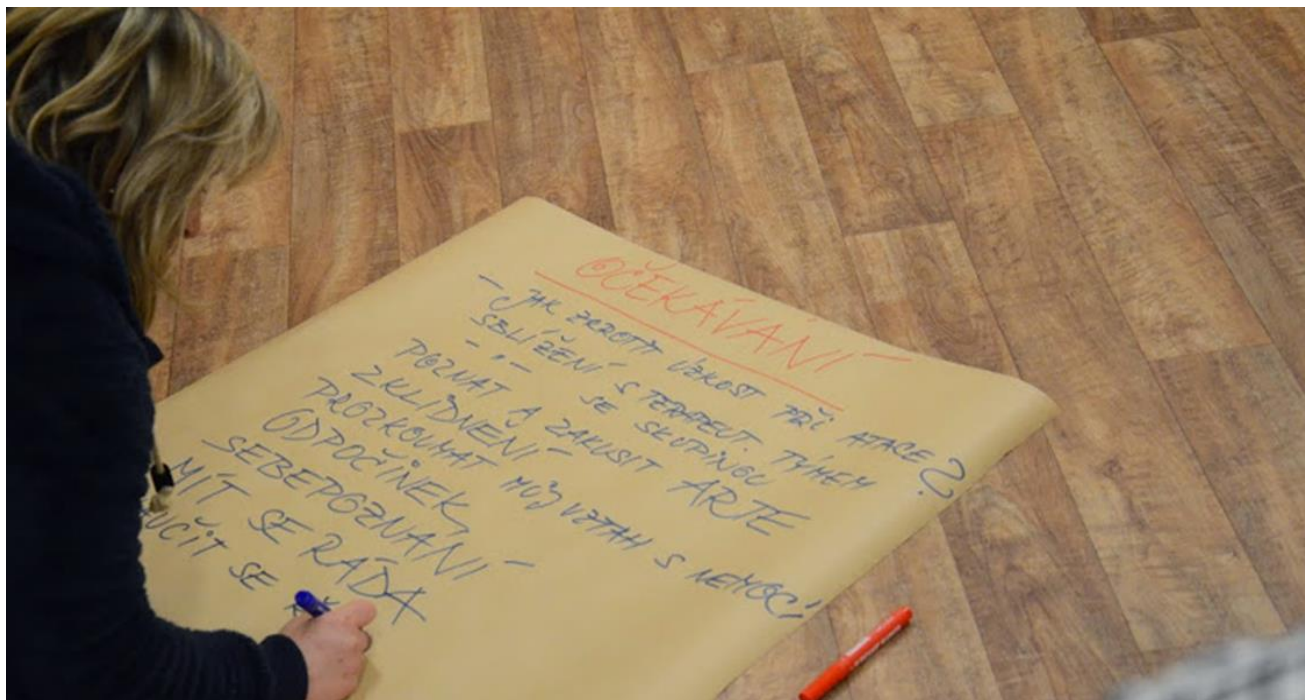 OČEKÁVÁNÍ
- JAK ZKROTIT ÚZKOST PŘI ATACE?
SBLÍŽENÍ S TERAPEUT TÝMEM
- " - SE SKUPINOU
POZNAT A ZAKUSIT ARTE
ZKLIDNĚNÍ
PROZKOUMAT MŮJ VZTAH S NEMOCÍ
ODPOČINEK,
SEBEPOZNÁNÍ
MÍT SE RÁDA
SE